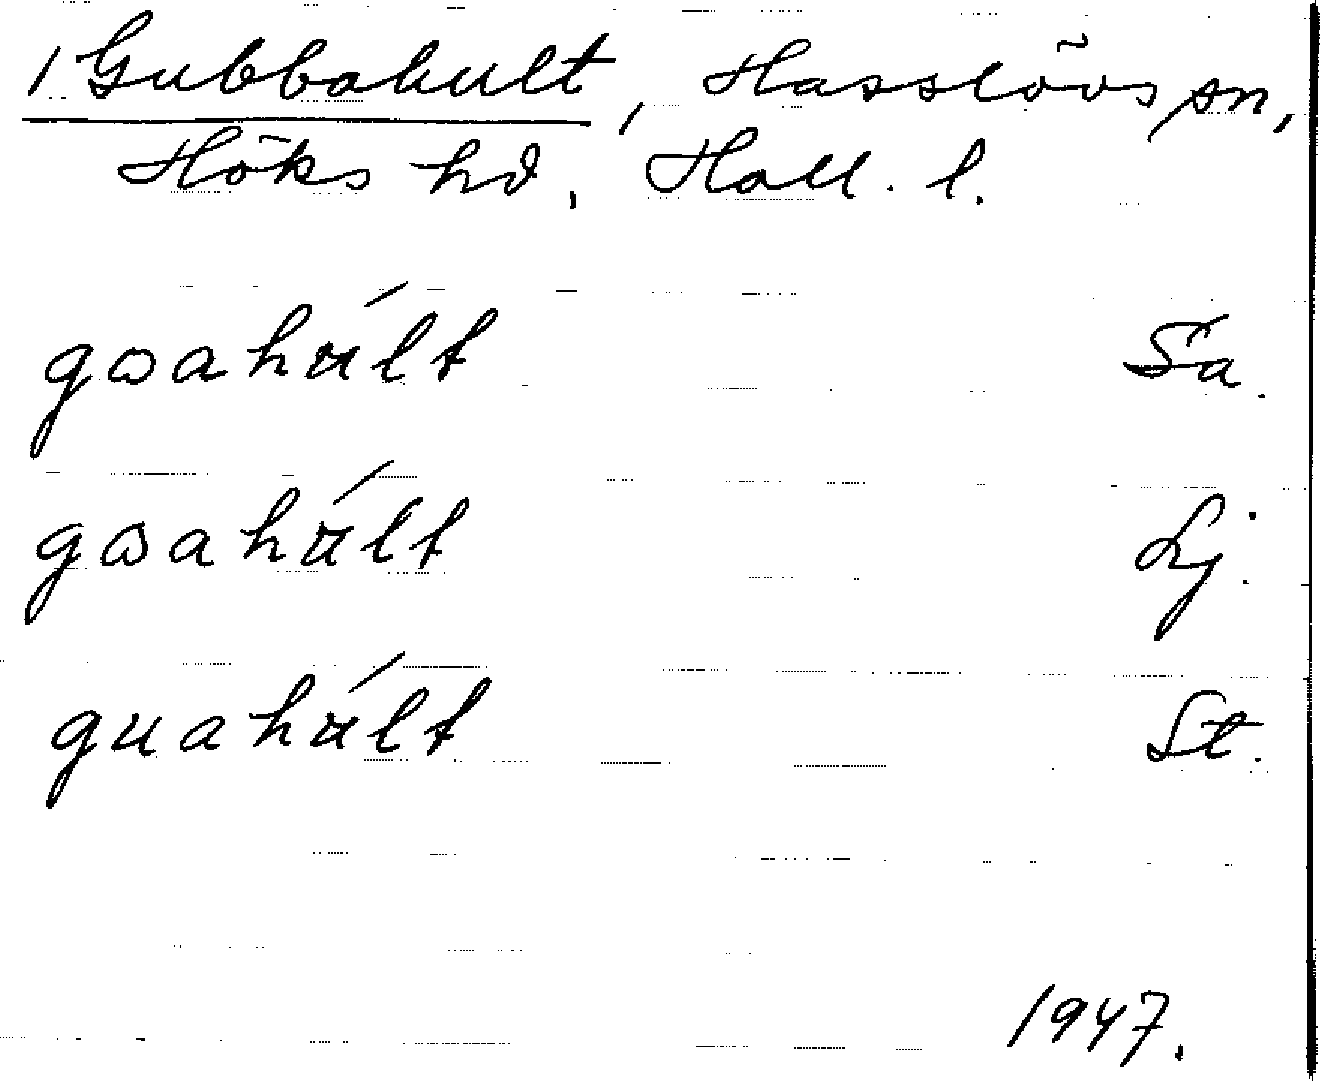 1 Gubbahult, Hasslövs sn,
Höks hd, Hall. l.
gωahúlt Sa.
gωahúlt Lj.
guahúlt St.
1947.